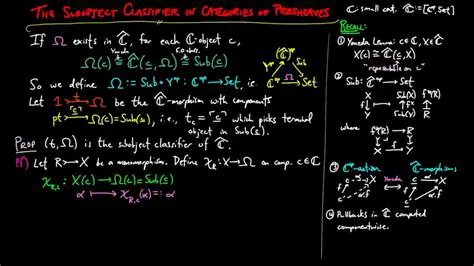 THE SUBOBJECT CLASSIFIER IN CATEGORIES OF PRESHEAVES
ℂ: small cat. ℂ̂ := [ℂᵒᵖ, Set]
If Ω exists in ℂ̂, for each ℂ-object c,
Yoneda
Ω(c) ≅ ℂ̂(c, Ω) ≅ Sub(c)
So we define Ω := Sub ∘ Yᵒᵖ : ℂᵒᵖ → Set, i.e.
Yᵒᵖ ℂ̂ᵒᵖ Sub
ℂᵒᵖ Ω Set
Let 1 → Ω be the ℂ̂-morphism with components
pt → Ω(c) = Sub(c), i.e., t_c = "c" which picks terminal
object in Sub(c).
PROP (t, Ω) is the subobject classifier of ℂ̂.
Pf) Let R ↣ X be a monomorphism. Define χ_R : X → Ω on comp. c ∈ ℂ
χ_R,c : X(c) → Ω(c) = Sub(c)
α ↦ χ_R,c(α) :=
RECALL:
① Yoneda Lemma: c ∈ ℂ, X ∈ ℂ̂
X(c) ≅ ℂ̂(c, X)
"representable on c"
② Sub: ℂ̂ᵒᵖ → Set
X Sub(X)
f↓ ↦ ↑f*
Y Sub(Y)
where f*(R) → R
X → Y
③ ℂᵒᵖ-action Yoneda ℂ̂-morphisms
④ Pullbacks in ℂ̂ computed
componentwise.